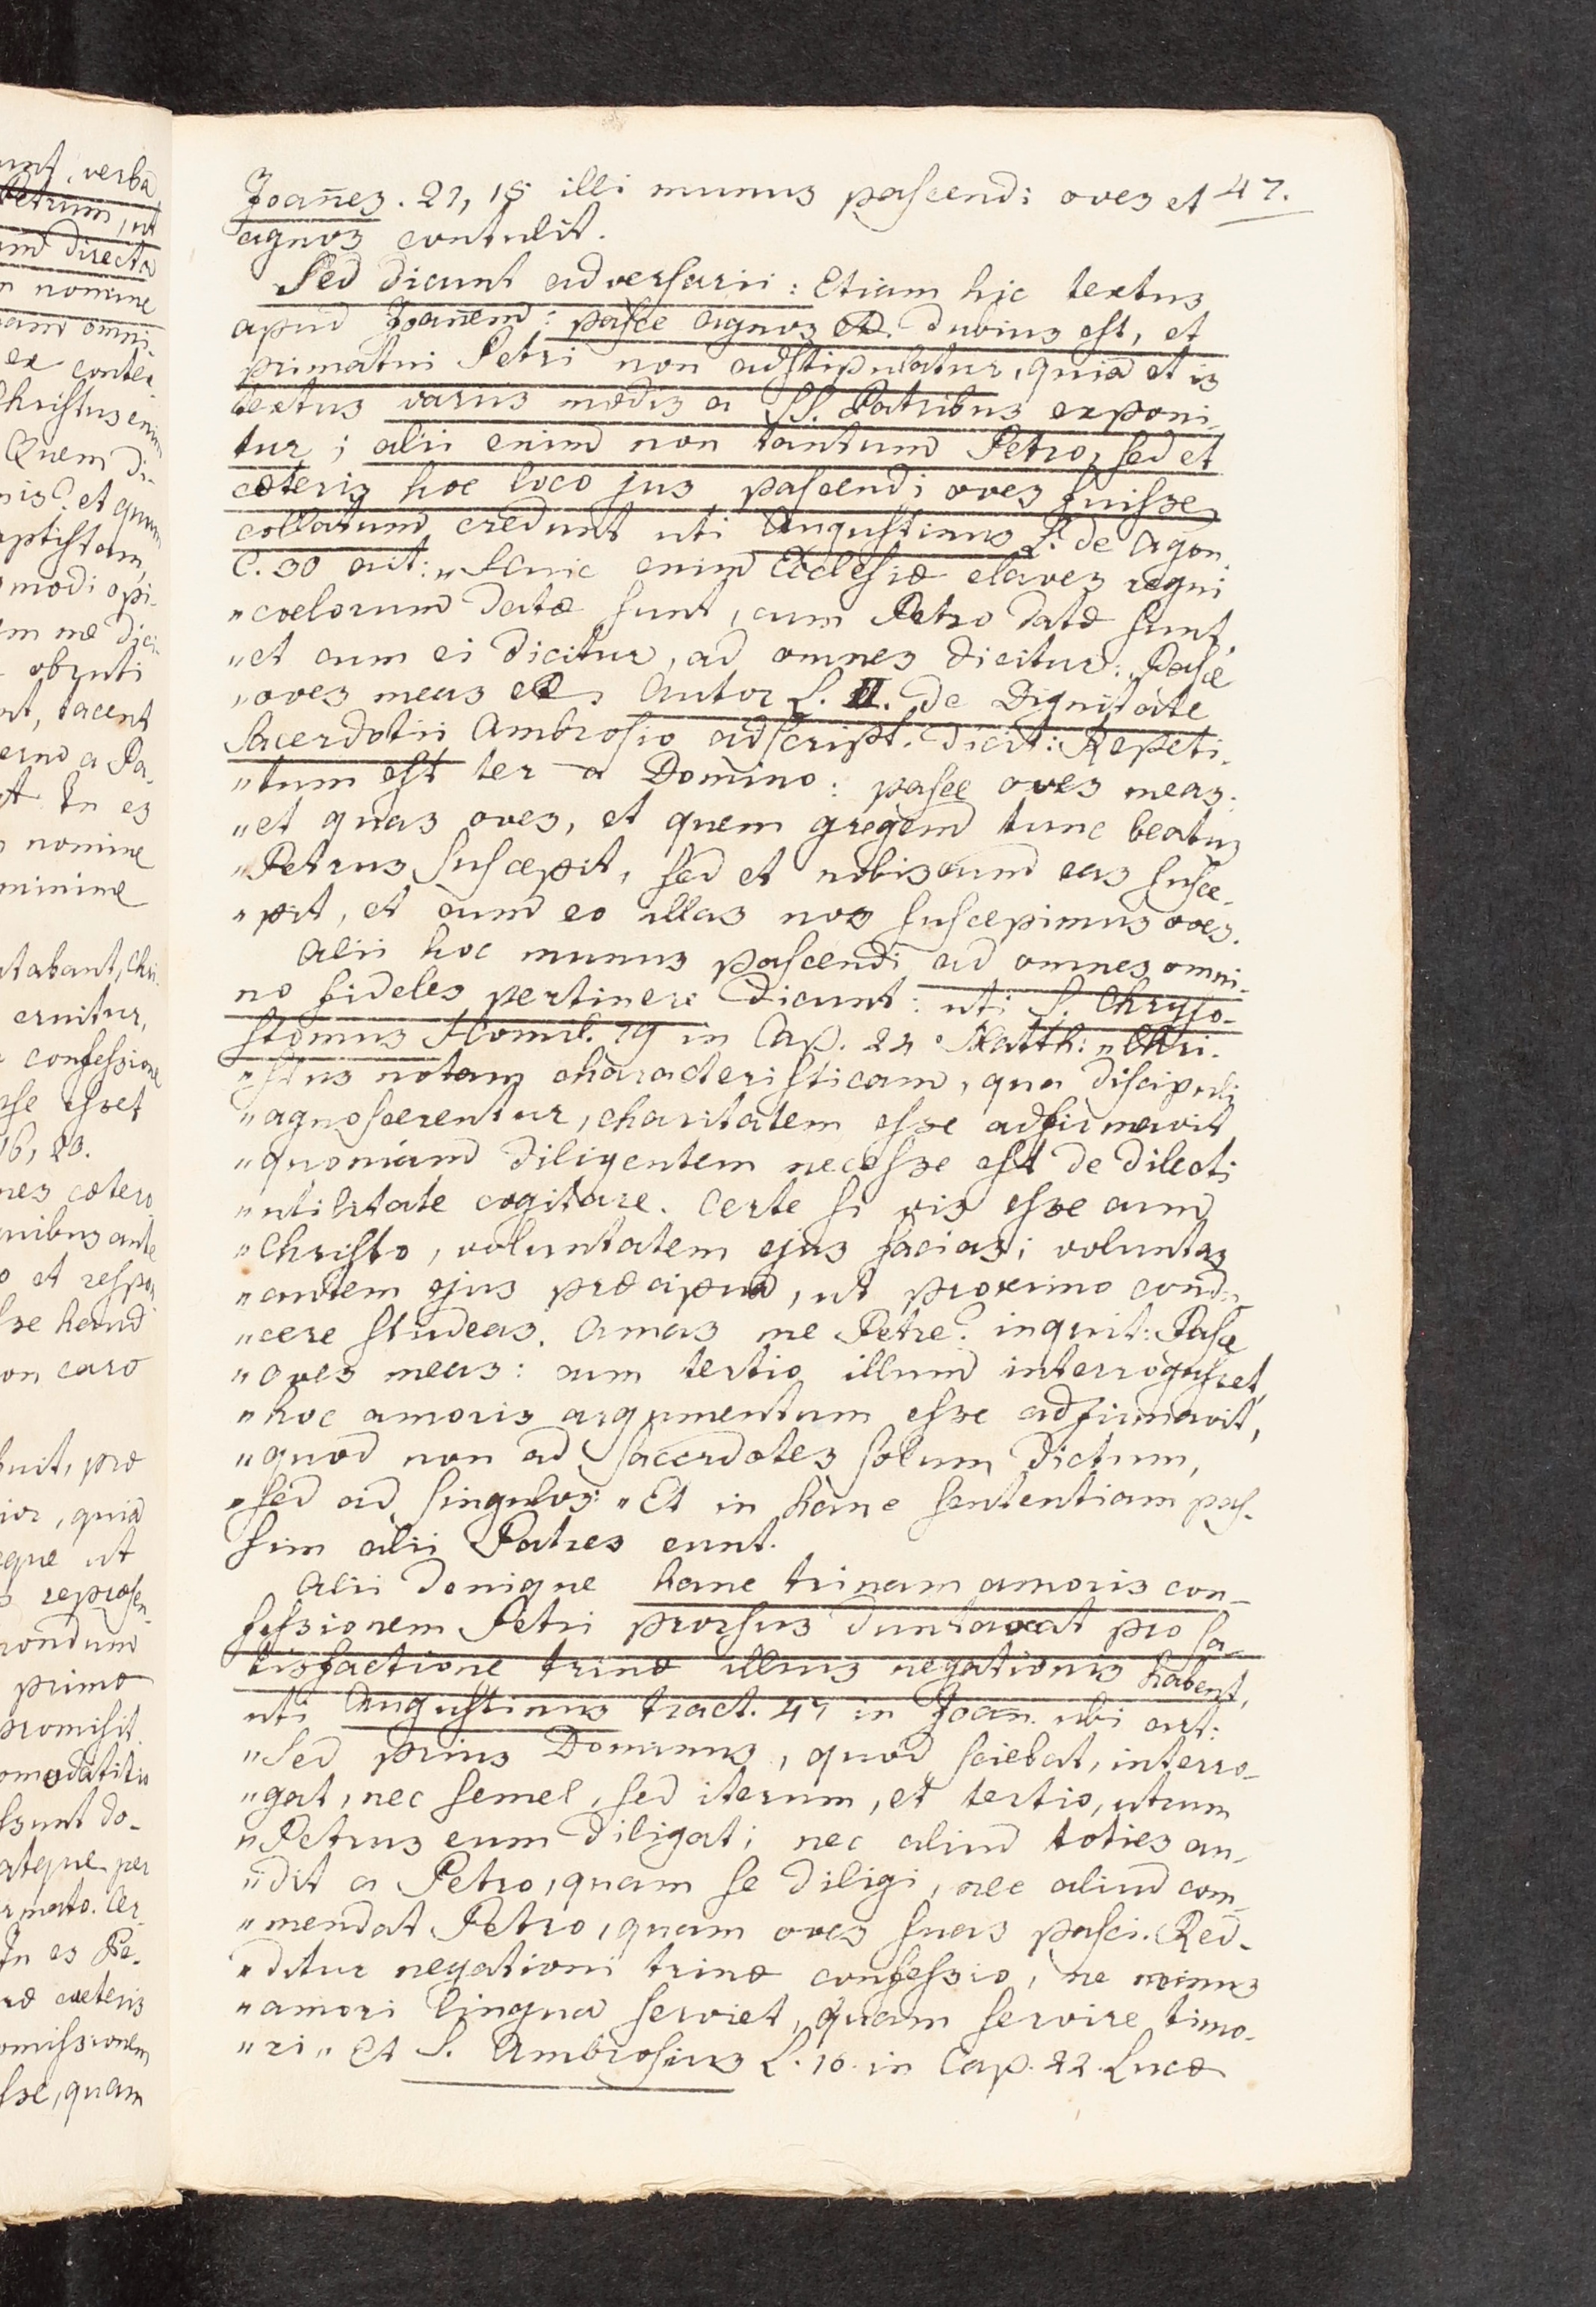 Joan̄es. 21, 15 illi munus pascendi oves et 47.
agnos contulit.
Sed dicunt adversarii: Etiam hic textus
apud Joan̄em: pasce agnos etc. dubius est, et
primatui Petri non adstipulatur, quia et is
textus variis modis a SS. Patribus exponi-
tur; alii enim non tantum Petro, sed et
cæteris hoc loco jus pascendi oves fuisse
collatum credunt uti Augustinus L. de Agon.
C. 30 ait: „Hunic enim Ecclesiæ claves regni
„coelorum datæ sunt, cum Petro datæ sunt,
„et cum ei dicitur, ad omnes dicitur: Pasce
„oves meas etc. Autor L. II. de Dignitate
Sacerdotii Ambrosio adscript. dicit: Repeti-
„tum est ter a Domino: pasce oves meas:
„et quas oves, et quem gregem tunc beatus
„Petrus suscepit, sed et nobiscum eas susce-
„pit, et cum eo illas nos suscepimus oves.
Alii hoc munus pascendi ad omnes omni-
no fideles pertinere dicunt: uti S. Chryso-
stomus Homil. 79 in Cap. 24 Matth: „Chri-
„stus notam characteristicam, qua discipuli
„agnoscerentur, charitatem esse adfirmavit
„quoniam diligentem necesse est de dilecti
„utilitate cogitare. Certe si vis esse cum
„Christo, voluntatem ejus facias; voluntas
„autem ejus præcipua, ut proximo condu-
„cere studeas. Amas me Petre? inquit: Pasce
„oves meas: cum tertio illum interrogasset,
„hoc amoris argumentum esse adfirmavit,
„quod non ad Sacerdotes solum dictum,
„sed ad singulos: „Et in hanc sententiam pas-
sim alii Patres eunt.
Alii denique hanc trinam amoris con-
fessionem Petri prorsus duntaxat pro sa-
tisfactione trinæ illius negationis habent,
uti Augustinus tract. 47 in Joan̄. ubi ait:
„Sed prius Dominus, quod sciebat, interro-
„gat, nec semel, sed iterum, et tertio, utrum
„Petrus eum diligat; nec aliud toties au-
„dit a Petro, quam se diligi, nec aliud com-
„mendat Petro, quam oves suas pasci. Red-
„ditur negationi trinæ confessio, ne minus
„amori lingua serviet, quam servire timo-
„ri„ Et S. Ambrosius L. 10. in Cap. 22. Lucæ